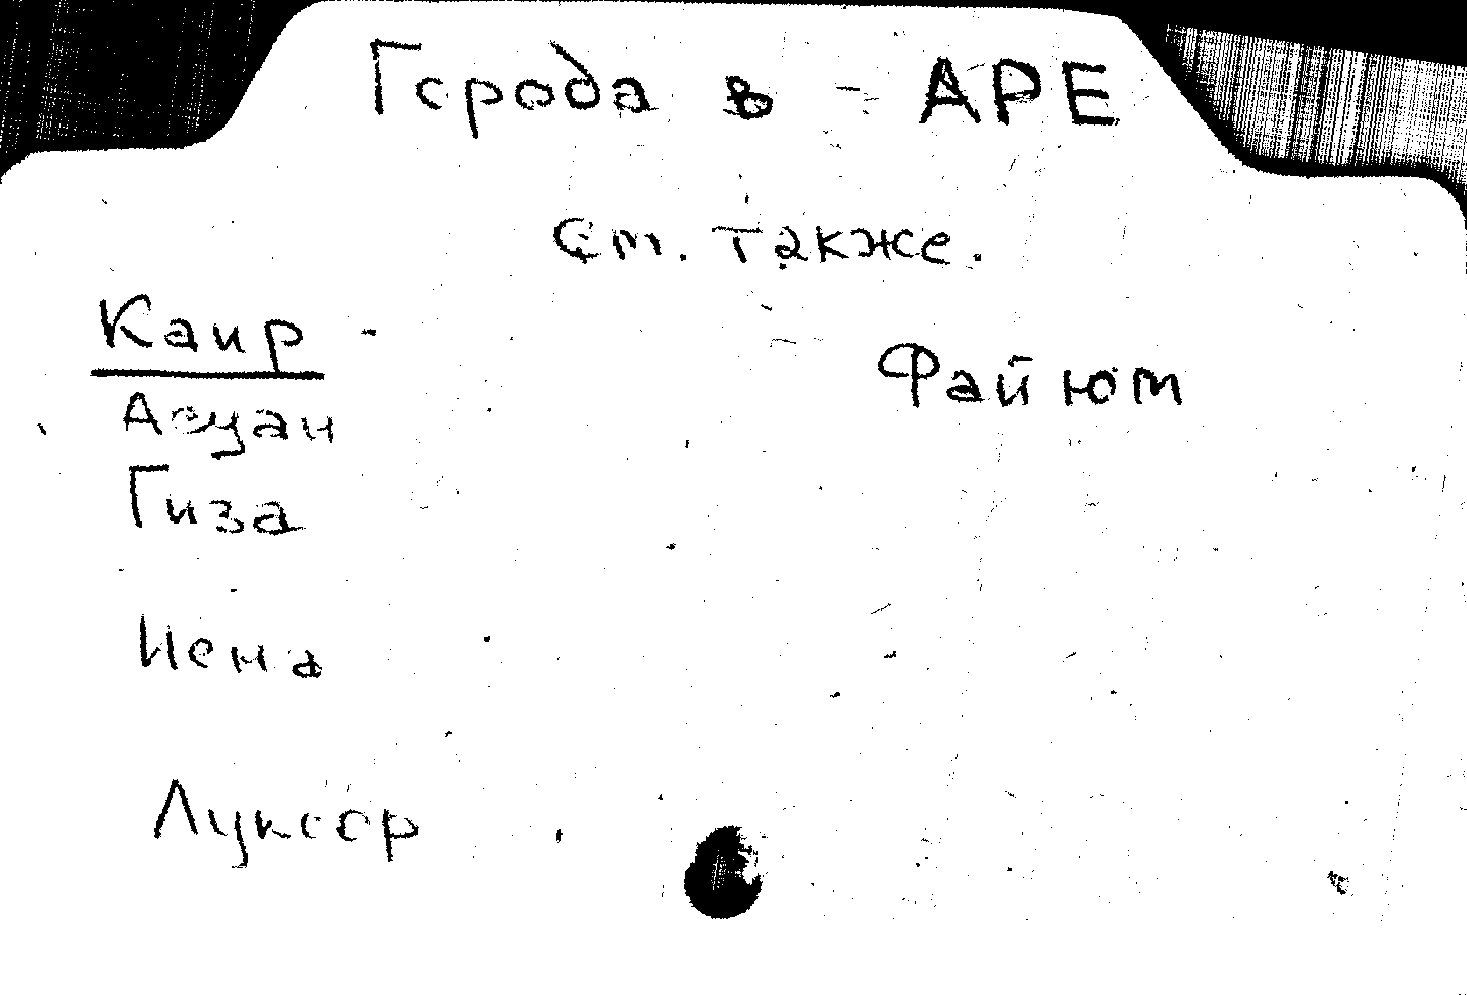 Города в - АРЕ
См. также.
Каир -
Асуан
Файюм
Гиза
Иена
Луксор